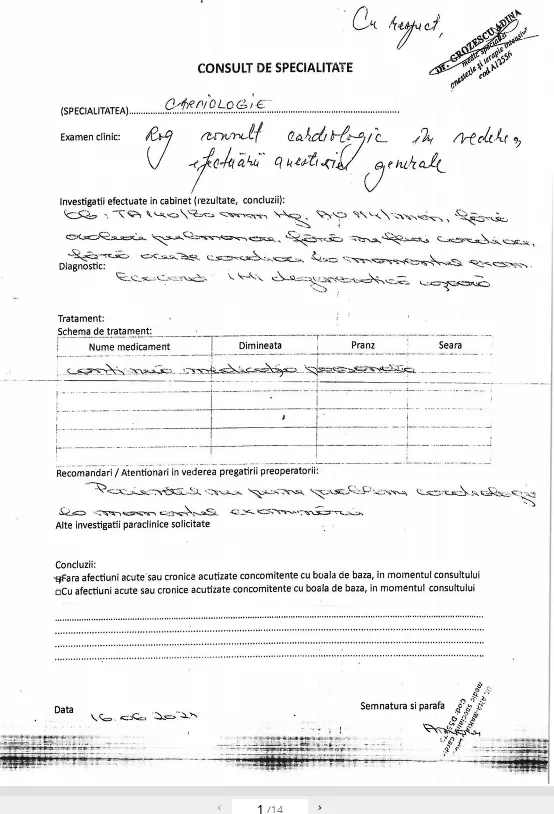 Cu respect,
DR. GROZESCU ADINA
medic specialist
anestezie si terapie intensiva
cod A12556
CONSULT DE SPECIALITATE
(SPECIALITATEA) CARDIOLOGIE
Examen clinic: Rog consult cardiologic în vederea
efectuării anesteziei generale
Investigatii efectuate in cabinet (rezultate, concluzii):
TA 140/80 mm Hg, fără
pulmonare, fără cardiace,
fără acuze cardiace la momentul exam.
Diagnostic:
Ecocord: IMi degenerativă ușoară
Tratament:
Schema de tratament:
Nume medicament Dimineata Pranz Seara
continuă medicația personală
Recomandari / Atentionari in vederea pregatirii preoperatorii:
Pacientul nu pune probleme cardiologice
la momentul examinării
Alte investigatii paraclinice solicitate
Concluzii:
Fara afectiuni acute sau cronice acutizate concomitente cu boala de baza, in momentul consultului
□Cu afectiuni acute sau cronice acutizate concomitente cu boala de baza, in momentul consultului
Data 16.06
Semnatura si parafa
1 /14